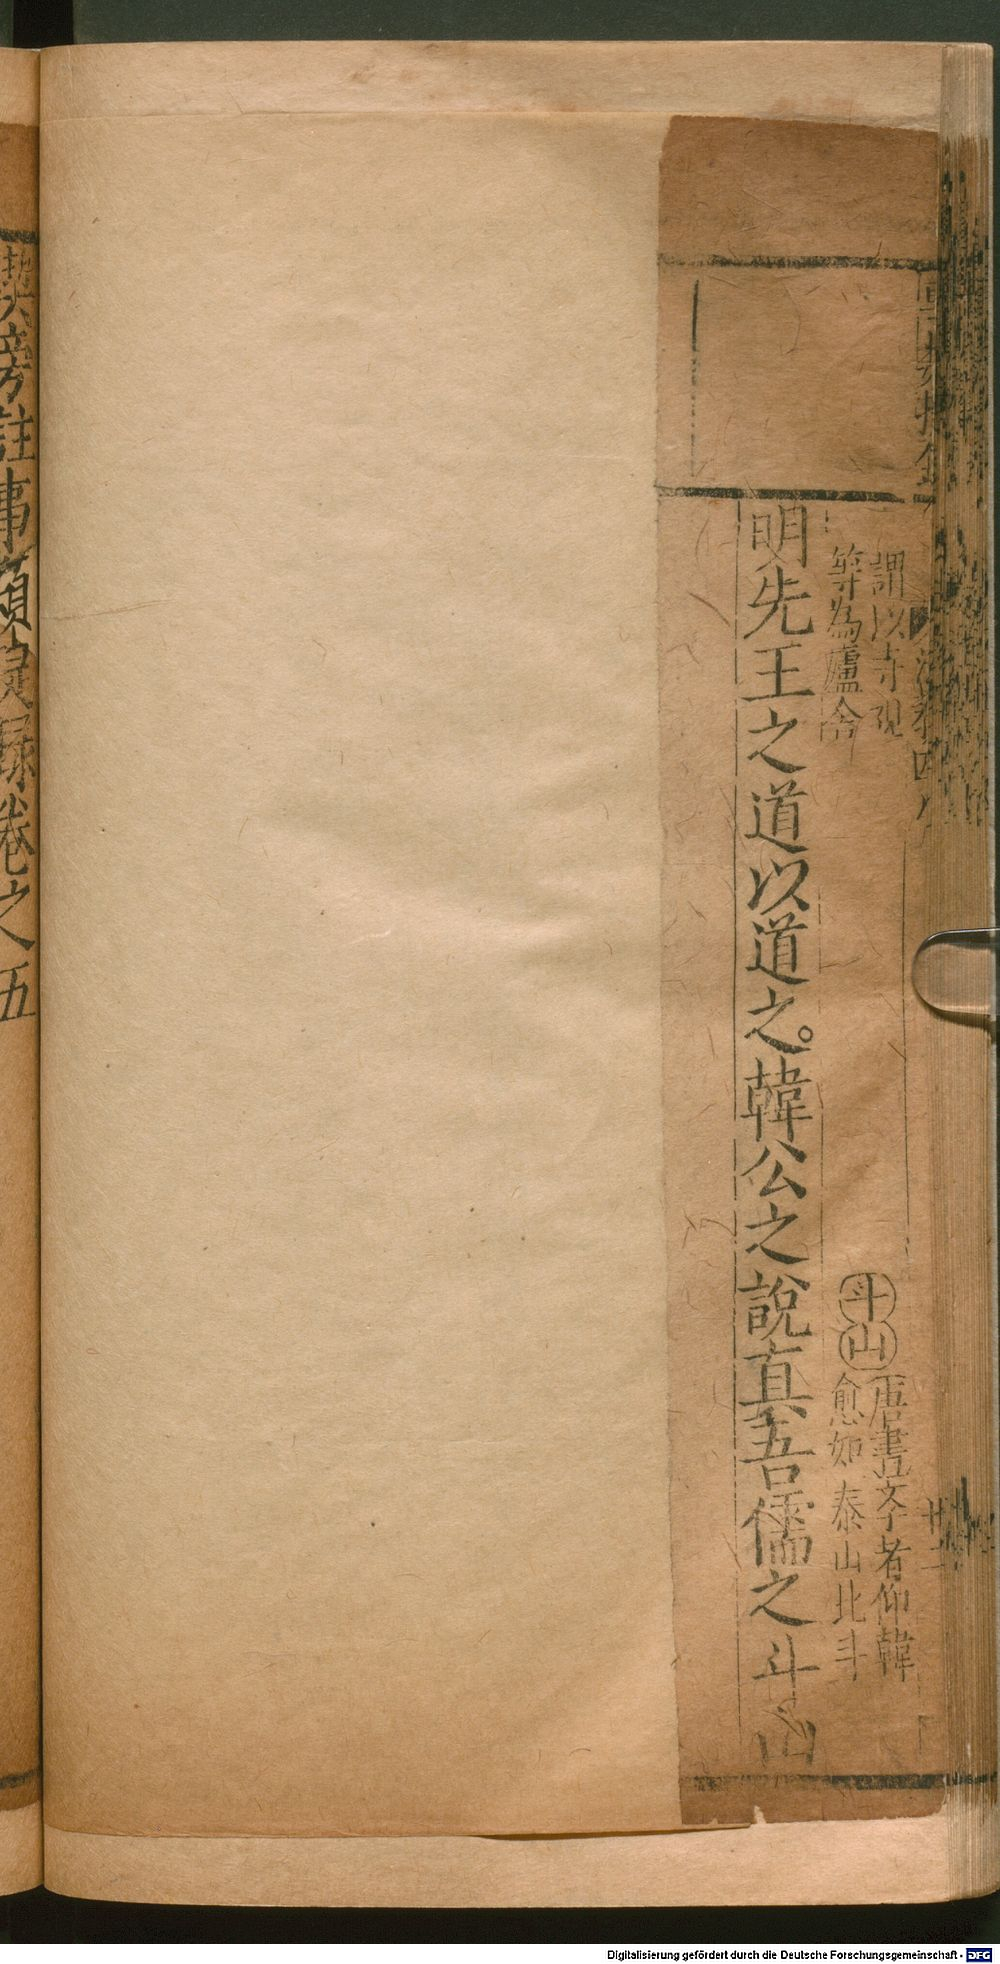 謂以寺觀
等為廬舍
斗山
唐書文學者仰韓
愈如泰山北斗
明先王之道以道之。韓公之說真吾儒之斗山
旁註事類捷錄卷之五
廿二
Digitalisierung gefördert durch die Deutsche Forschungsgemeinschaft - DFG